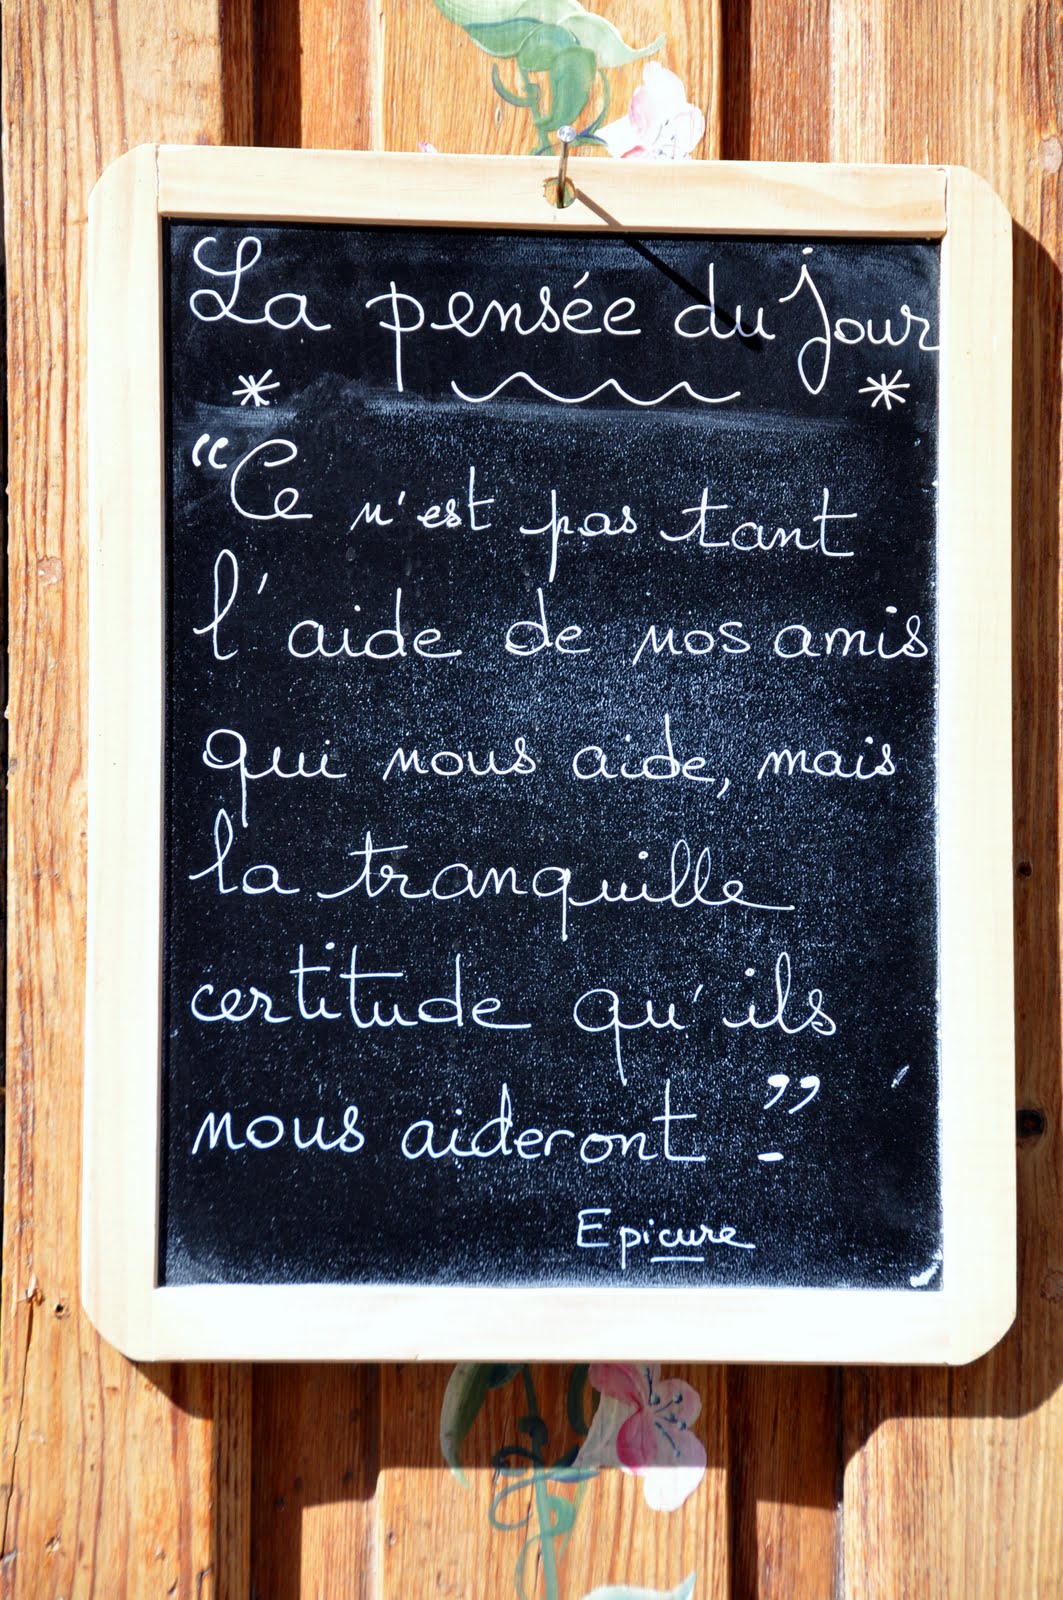 La pensée du jour
"Ce n'est pas tant
l'aide de nos amis
qui nous aide, mais
la tranquille
certitude qu'ils
nous aideront".
Epicure